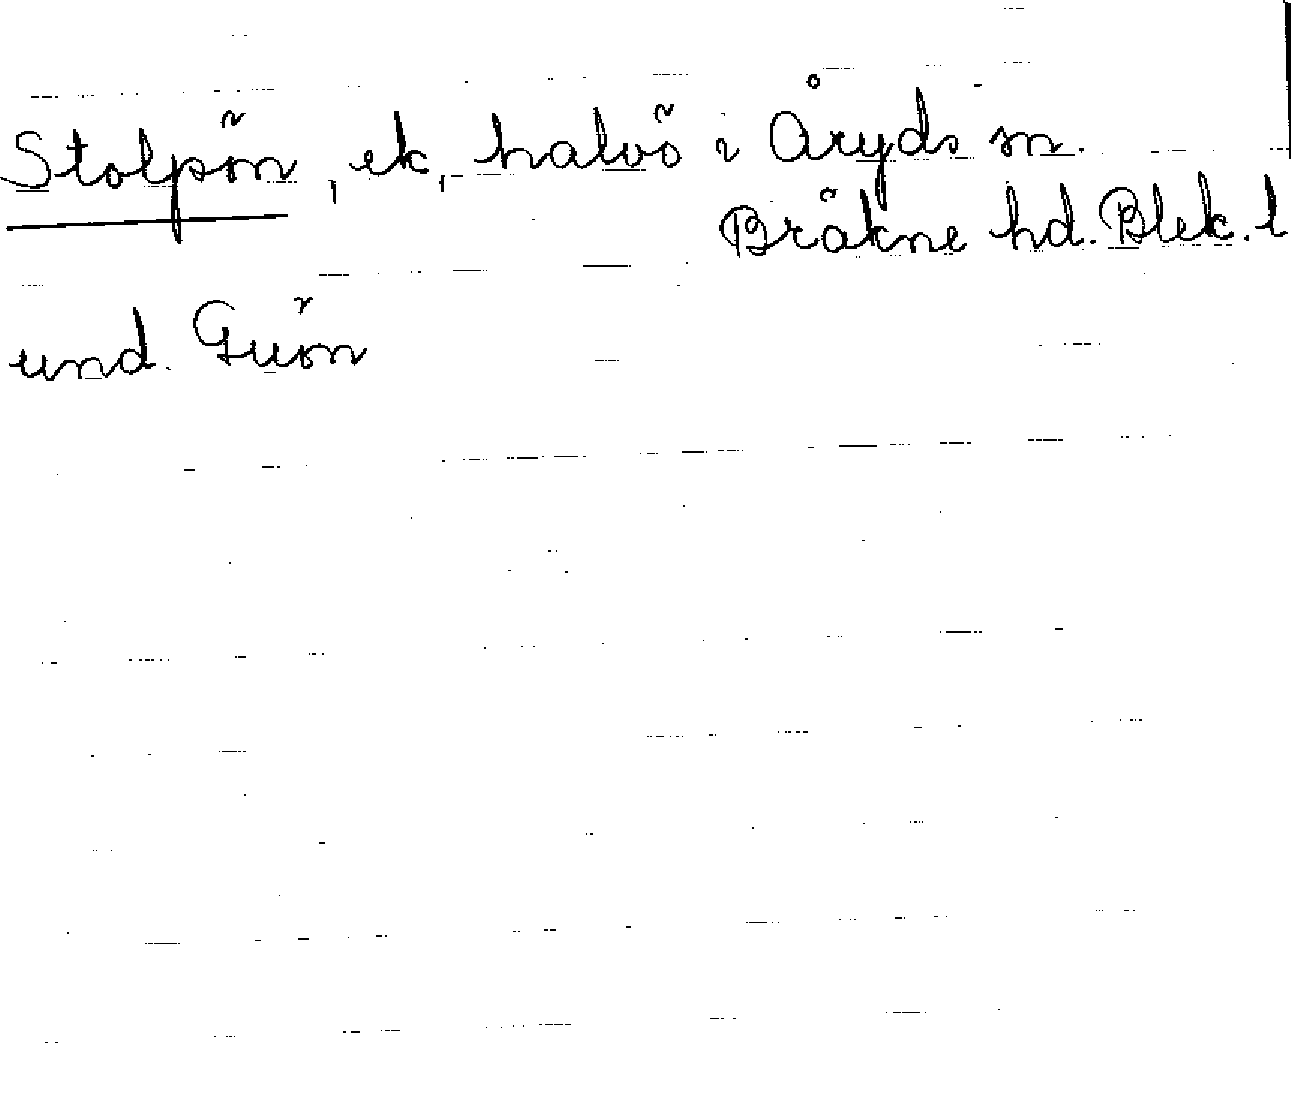 Stolpön, ek, halvö i Åryds sn.
Bräkne hd. Blek. l
und. Guön